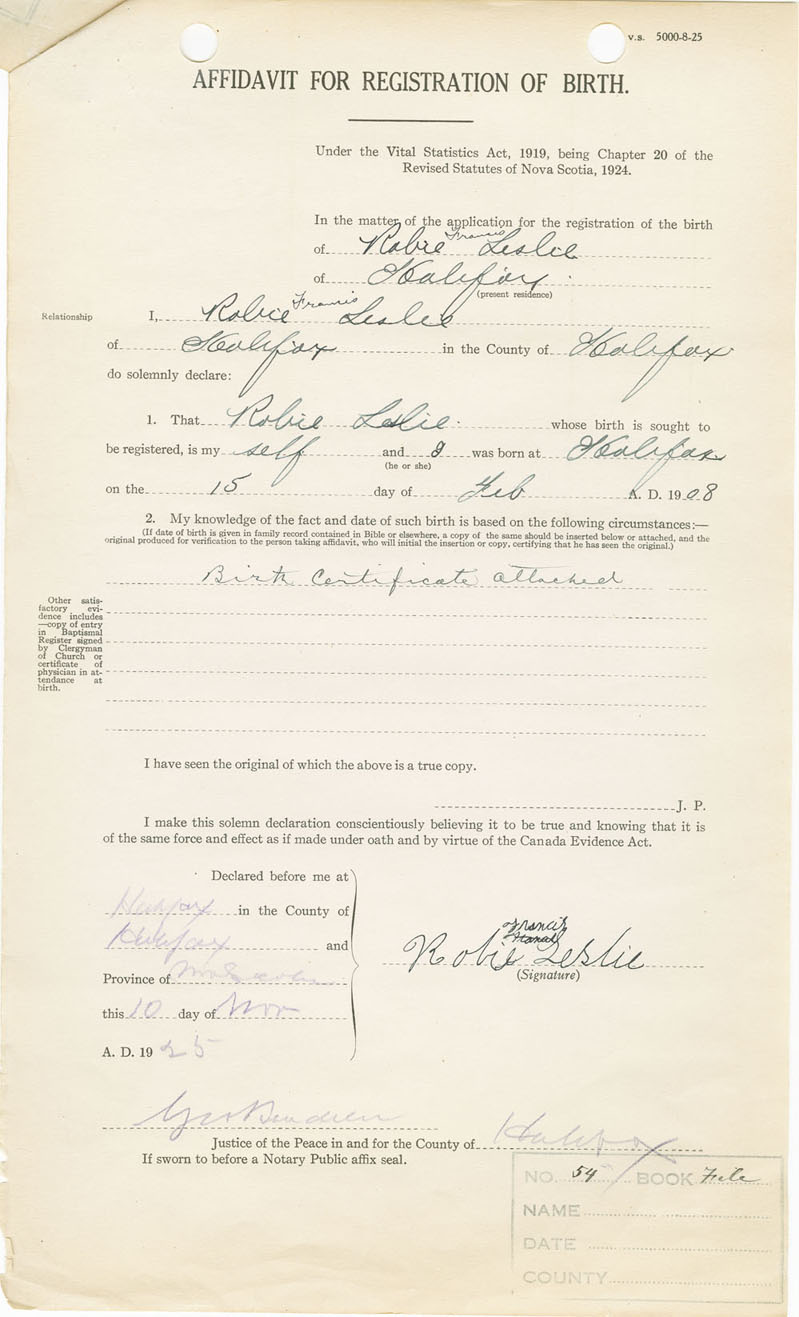 v.s. 5000-8-25
AFFIDAVIT FOR REGISTRATION OF BIRTH.
Under the Vital Statistics Act, 1919, being Chapter 20 of the
Revised Statutes of Nova Scotia, 1924.
In the matter of the application for the registration of the birth
of Robie Francis Leslie
of Halifax
(present residence)
Relationship I, Robie Francis Leslie
of Halifax in the County of Halifax
do solemnly declare:
1. That Robie Leslie whose birth is sought to
be registered, is my self and I was born at Halifax
(he or she)
on the 15 day of Feb A. D. 1908
2. My knowledge of the fact and date of such birth is based on the following circumstances:—
(If date of birth is given in family record contained in Bible or elsewhere, a copy of the same should be inserted below or attached, and the
original produced for verification to the person taking affidavit, who will initial the insertion or copy, certifying that he has seen the original.)
Birth Certificate attached
Other satis-
factory evi-
dence includes
—copy of entry
in Baptismal
Register signed
by Clergyman
of Church or
certificate of
physician in at-
tendance at
birth.
I have seen the original of which the above is a true copy.
J. P.
I make this solemn declaration conscientiously believing it to be true and knowing that it is
of the same force and effect as if made under oath and by virtue of the Canada Evidence Act.
Declared before me at
Halifax in the County of
Halifax and
Province of Nova Scotia
this 10 day of Nov
A. D. 1925
Francis
Robie Leslie
(Signature)
Justice of the Peace in and for the County of Halifax
If sworn to before a Notary Public affix seal.
NO. 54 BOOK File
NAME
DATE
COUNTY